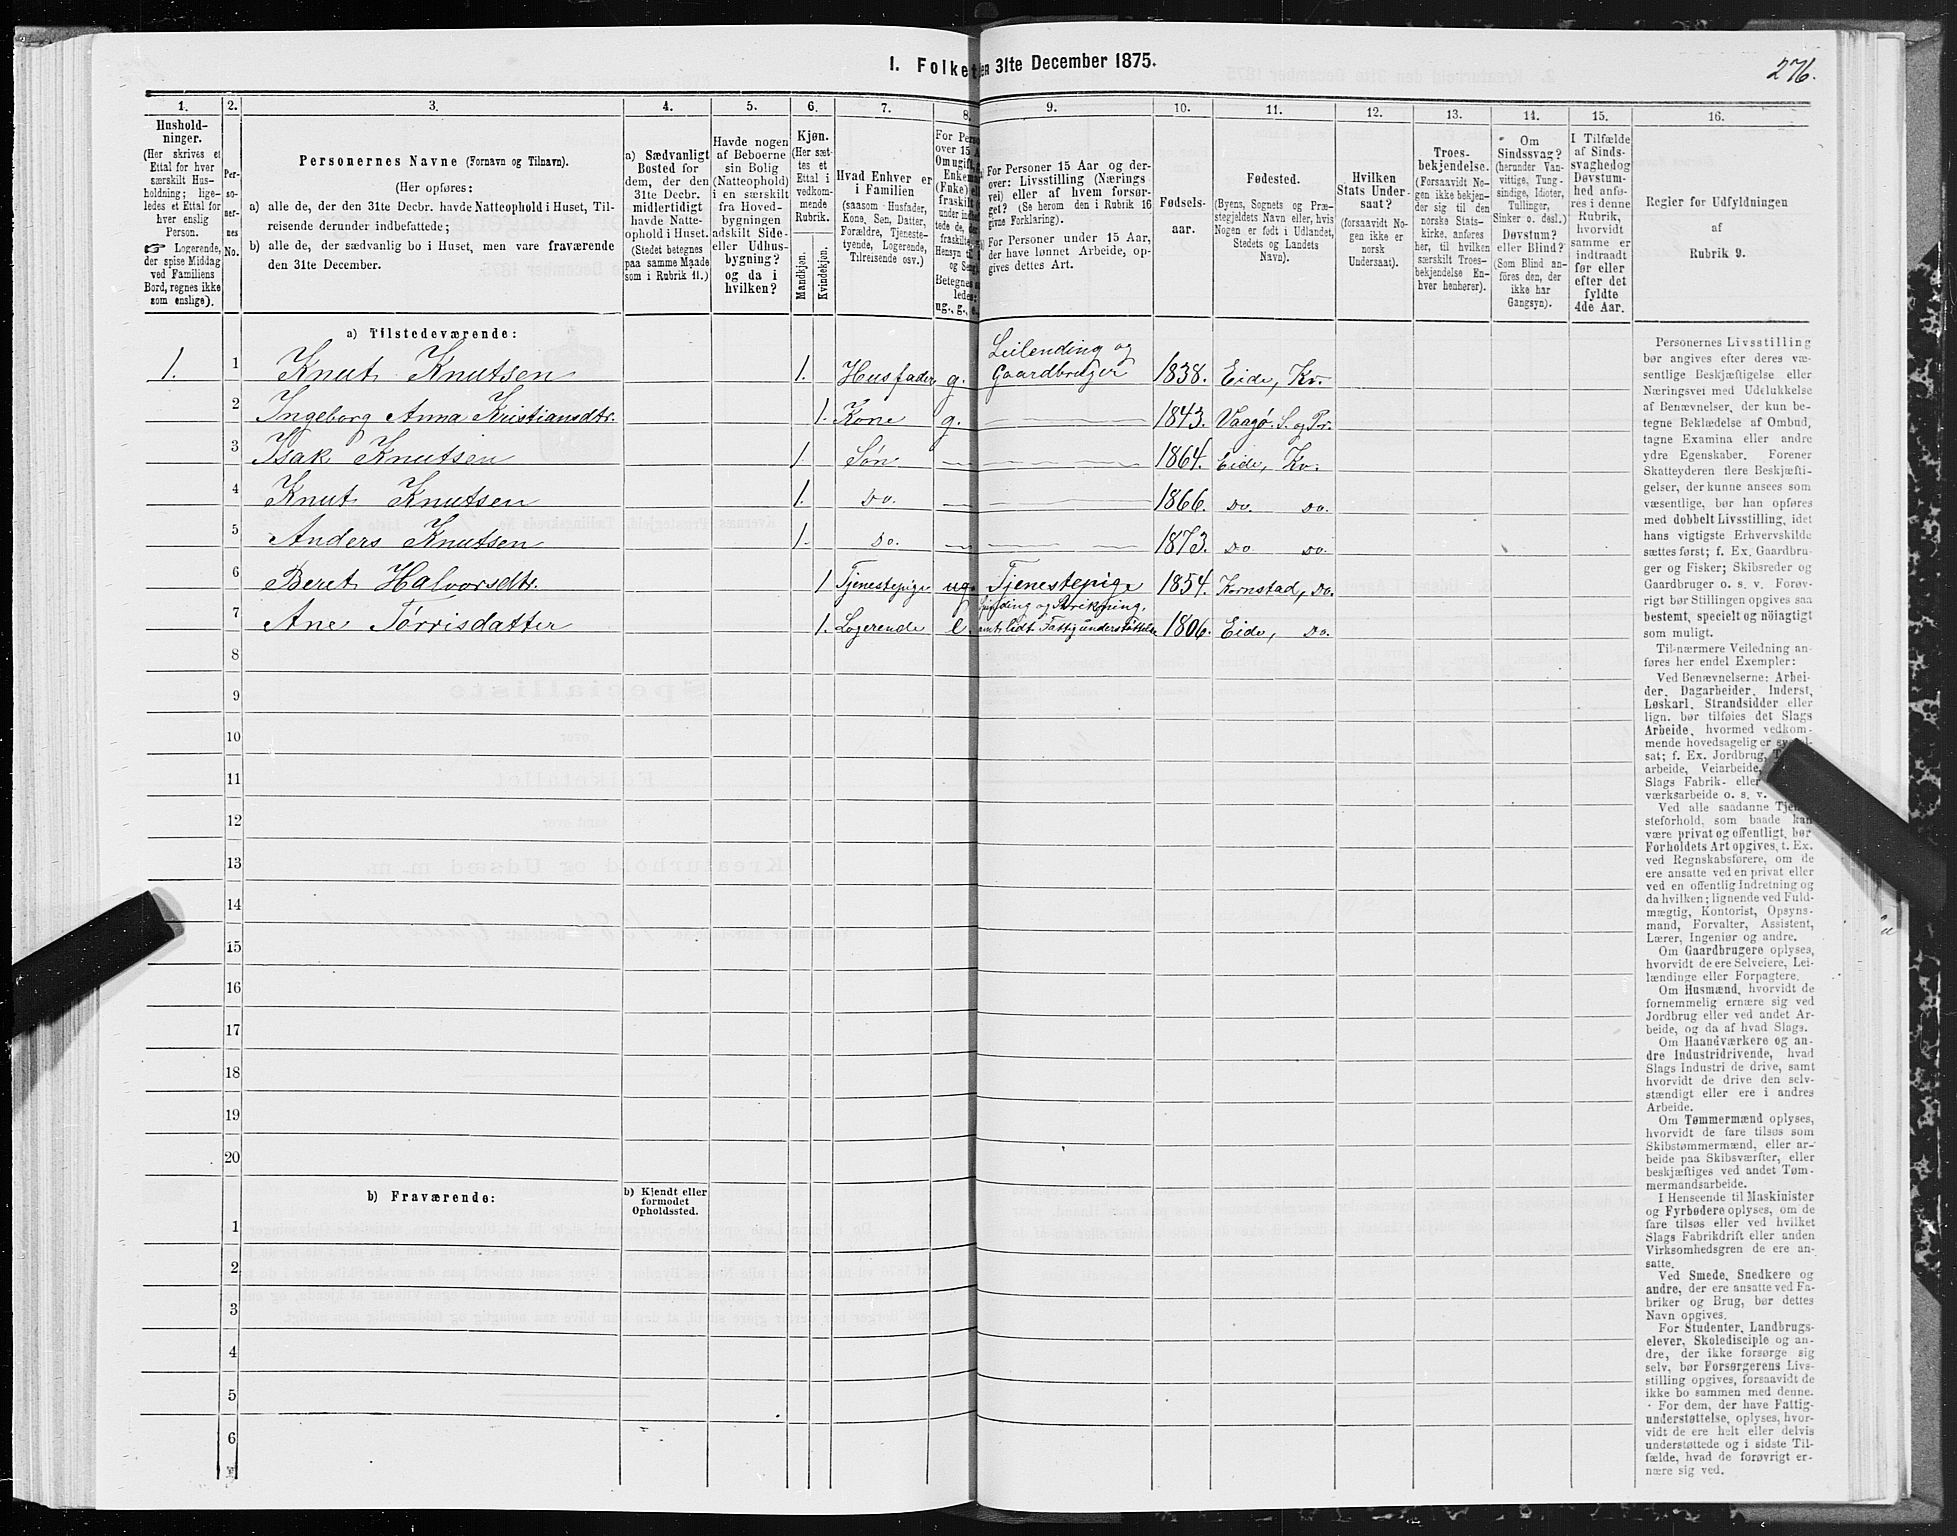 1. Folket
en 31te December 1875.
276.
1.
2.
3.
4.
5.
6.
7.
8.
9.
10.
11.
12.
13.
14.
15.
16.
Hushold-
ninger.
(Her skrives et
Ettal for hver
særskilt Hus-
holdning; lige-
ledes et Ettal for
hver enslig
Person.
☞ Logerende,
der spise Middag
ved Familiens
Bord, regnes ikke
som enslige).
Per-
so-
ner-
nes
No.
Personernes Navne (Fornavn og Tilnavn).
(Her opføres:
a) alle de, der den 31te Decbr. havde Natteophold i Huset, Til-
reisende derunder indbefattede;
b) alle de, der sædvanlig bo i Huset, men vare fraværende
den 31te December.
a) Sædvanligt
Bosted for
dem, der den
31te Decbr.
midlertidigt
havde Natte-
ophold i Huset.
(Stedet betegnes
paa samme Maade
som i Rubrik 11.)
Havde nogen
af Beboerne
sin Bolig
(Natteophold)
i en særskilt
fra Hoved-
bygningen
adskilt Side-
eller Udhus-
bygning?
og da i
hvilken?
Kjøn.
(Her sæt-
tes et
Ettal i
vedkom-
mende
Rubrik.
Mandkjøn.
Kvindekjøn.
Hvad Enhver er
i Familien
(saasom: Husfader,
Kone, Søn, Datter,
Forældre, Tjeneste-
tyende, Logerende,
Tilreisende osv.)
For Perso
over 15 A
Om ugift,
Enkema
(Enke) el
fraskilt
under indbef
tede de,
fraskilte,
Hensyn ti
og Seng
Betegnes
ledes:
ug., g., e.
For Personer 15 Aar og der-
over: Livsstilling (Nærings
vei) eller af hvem forsør-
get? (Se herom den i Rubrik 16
givne Forklaring).
For Personer under 15 Aar,
der have lønnet Arbeide, op-
gives dettes Art.
Fødsels-
aar.
Fødested.
(Byens, Sognets og Præ-
stegjeldets Navn eller, hvis
Nogen er født i Udlandet,
Stedets og Landets
Navn).
Hvilken
Stats Under-
saat?
(forsaavidt No-
gen ikke er
norsk
Undersaat).
Troes-
bekjendelse.
(Forsaavidt No-
gen ikke bekjen-
der sig til den
norske Stats-
kirke, anføres
her, til hvilken
særskilt Troes-
bekjendelse En-
hver henhører).
Om
Sindssvag?
(herunder Van-
vittige, Tung-
sindige, Idioter,
Tullinger,
Sinker o. desl.)
Døvstum?
eller Blind?
(Som Blind an-
føres den, der
ikke har
Gangsyn).
I Tilfælde
af Sinds-
svaghed og
Døvstum-
hed anfø-
res i denne
Rubrik,
hvorvidt
samme er
indtraadt
før eller
efter det
fyldte
4de Aar.
Regler før Udfyldningen
af
Rubrik 9.
a) Tilstedeværende:
1. 1 Knut Knutsen 1. Husfader g. Leilending og
Gaardbruger 1838. Eide, Kv.
2 Ingeborg Anna Kristiansdtr. 1. Kone g. 1843. Vaagø. S. og Pr.
3 Isak Knutsen 1 Søn 1864. Eide, Kv.
4 Knut Knutsen 1. Do. 1866. Do. Do.
5 Anders Knutsen 1. Do. 1873. Do Do.
6 Beret Halvorsdtr. 1 Tjenestepige ug. Tjenestepige 1854. Kornstad, Do.
7 Ane Tørrisdatter 1. Logerende e. Spinding og Strikning,
samt lidt Fattigunderstøttelse 1806. Eide, Do.
8
9
10
11
12
13
14
15
16
17
18
19
20
b) Fraværende:
b) Kjendt eller
formodet
Opholdssted.
1
2
3
4
5
6
Personernes Livsstilling
bør angives efter deres væ-
sentlige Beskjæftigelse eller
Næringsvei med Udelukkelse
af Benævnelser, der kun be-
tegne Beklædelse af Ombud,
tagne Examina eller andre
ydre Egenskaber. Forener
Skatteyderen flere Beskjæfti-
gelser, der kunne ansees som
væsentlige, bør han opføres
med dobbelt Livsstilling, idet
hans vigtigste Erhvervskilde
sættes først; f. Ex. Gaardbru-
ger og Fisker; Skibsreder og
Gaardbruger o. s. v. Forøv-
rigt bør Stillingen opgives saa
bestemt, specielt og nöiagtigt
som muligt.
Til nærmere Veiledning an-
føres her endel Exempler:
Ved Benævnelserne: Arbei-
der, Dagarbeider, Inderst,
Løskarl, Strandsidder eller
lign. bør tilføies det Slags
Arbeide, hvormed vedkom-
mende hovedsagelig er syssel-
sat; f. Ex. Jordbrug,
arbeide, Veiarbeide,
Slags Fabrik- eller
værksarbeide o. s. v.
Ved alle saadanne Tjene-
steforhold, som baade kan
være privat og offentligt, bør
Forholdets Art opgives, t. Ex.
ved Regnskabsførere, om de
ere ansatte ved en privat eller
ved en offentlig Indretning og
da hvilken; lignende ved Fuld-
mægtig, Kontorist, Opsyns-
mand, Forvalter, Assistent,
Lærer, Ingeniør og andre.
Om Gaardbrugere oplyses,
hvorvidt de ere Selveiere, Lei-
lændinge eller Forpagtere.
Om Husmænd, hvorvidt de
fornemmelig ernære sig ved
Jordbrug eller ved andet Ar-
beide, og da af hvad Slags.
Om Haandværkere og an-
dre Industridrivende, hvad
Slags Industri de drive, samt
hvorvidt de drive den selv-
stændigt eller ere i andres
Arbeide.
Om Tømmermænd oplyses,
hvorvidt de fare tilsøs som
Skibstømmermænd, eller ar-
beide paa Skibsværfter, eller
beskjæftiges ved andet Tøm-
mermandsarbeide.
I Henseende til Maskinister
og Fyrbødere oplyses, om de
fare tilsøs eller ved hvilket
Slags Fabrikdrift eller anden
Virksomhedsgren de ere an-
satte.
Ved Smede, Snedkere og
andre, der ere ansatte ved Fa-
briker og Brug, bør dettes
Navn opgives.
For Studenter, Landbrugs-
elever, Skoledisciple og an-
dre, der ikke forsørge sig
selv, bør Forsørgerens Livs-
stilling opgives, forsaavidt de
ikke bo sammen med denne.
For dem, der have Fattig-
understøttelse, oplyses, hvor-
vidt de ere helt eller delvis
understøttede og i sidste Til-
fælde, hvad de forøvrigt er-
nære sig ved.